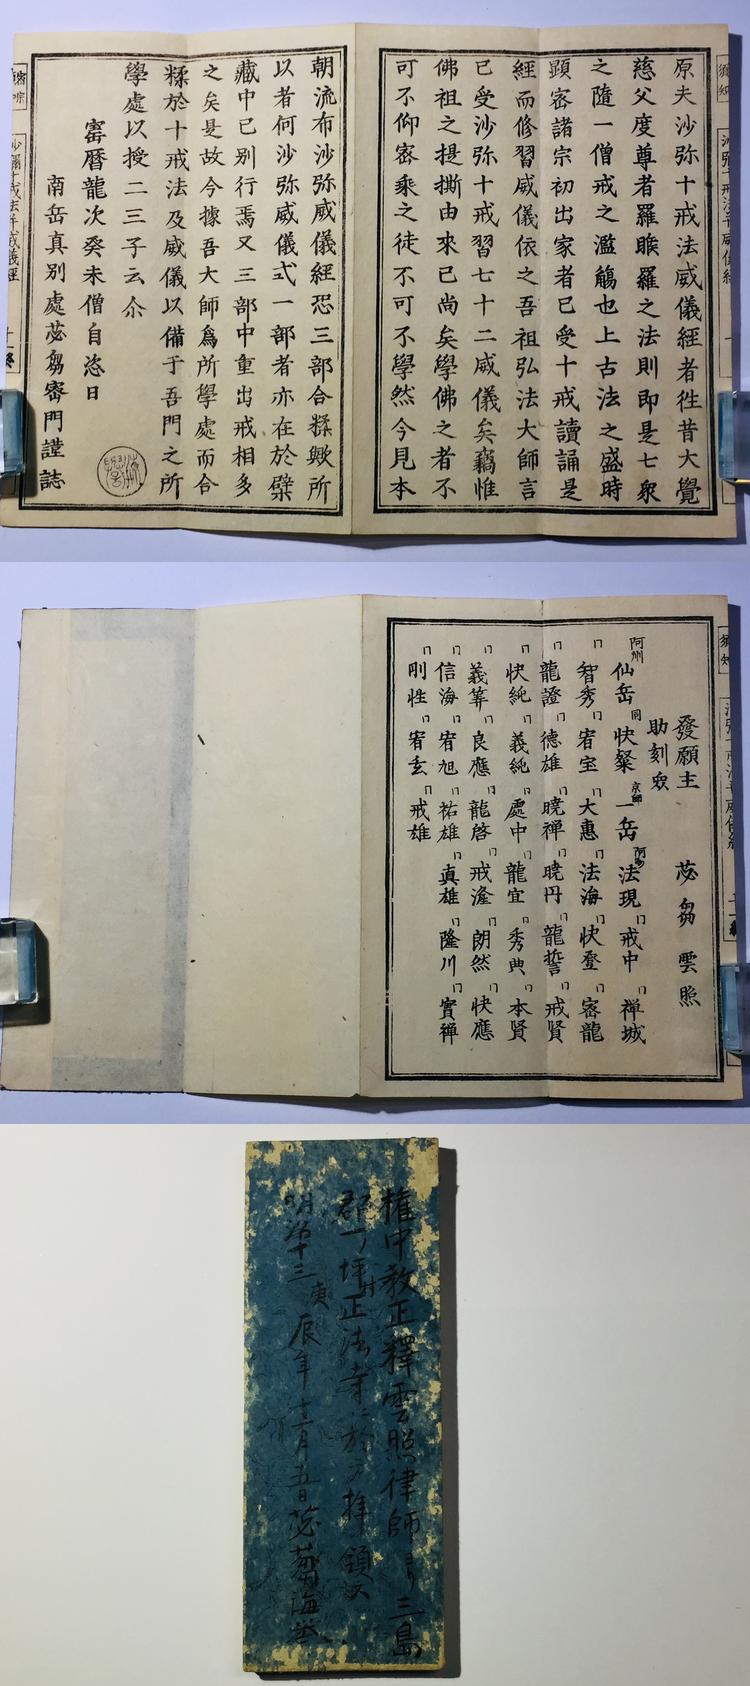 原夫沙弥十戒法威儀經者徃昔大覺
慈父度尊者羅睺羅之法則即是七衆
之隨一僧戒之濫觴也上古法之盛時
顕密諸宗初出家者已受十戒讀誦是
經而修習威儀依之吾祖弘法大師言
已受沙弥十戒習七十二威儀矣竊惟
佛祖之提撕由來已尚矣學佛之者不
可不仰密乘之徒不可不學然今見本
朝流布沙弥威儀經恐三部合糅歟所
以者何沙弥威儀式一部者亦在於檗
藏中已別行焉又三部中重出戒相多
之矣是故今據吾大師為所學處而合
糅於十戒法及威儀以備于吾門之所
學處以授二三子云尒
寳曆龍次癸未僧自恣日
南岳真別處苾芻密門謹誌
須知
沙弥十戒法并威儀經
十一
發願主 苾芻雲照
助刻衆
阿州 仙岳 同 快粲 京師 一岳 阿州 法現 〃 戒中 〃 禅城
〃 智秀 〃 宥宝 〃 大惠 〃 法海 〃 快登 〃 密龍
〃 龍證 〃 德雄 〃 曉禅 〃 曉丹 〃 龍誓 〃 戒賢
〃 快純 〃 義純 〃 處中 〃 龍宜 〃 秀典 〃 本賢
〃 義筭 〃 良應 〃 龍啓 〃 戒 〃 朗然 〃 快應
〃 信海 〃 宥旭 〃 祐雄 〃 真雄 〃 隆川 〃 實禅
〃 剛性 〃 宥玄 〃 戒雄
須知
權中教正釋雲照律師ヨリ三島
郡下坪村正法寺ニ於テ拝領
明治十三庚辰年十二月五日苾蒭海